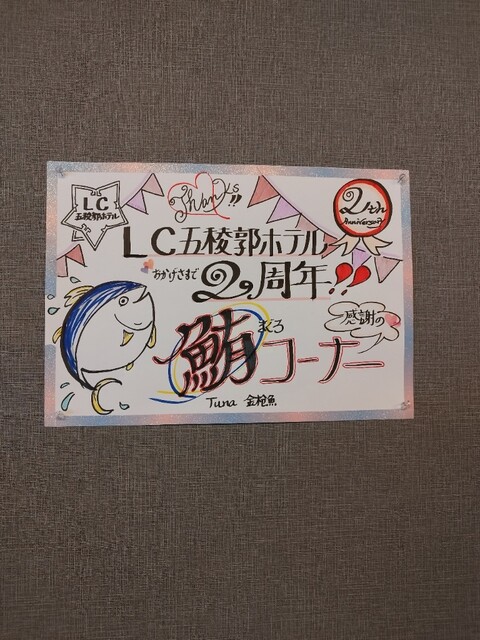 Thanks!!
LC
五稜郭ホテル
2th
Anniversary
LC五稜郭ホテル
おかげさまで
2周年!!
感謝の
まぐろ
鮪コーナー
Tuna 金枪魚